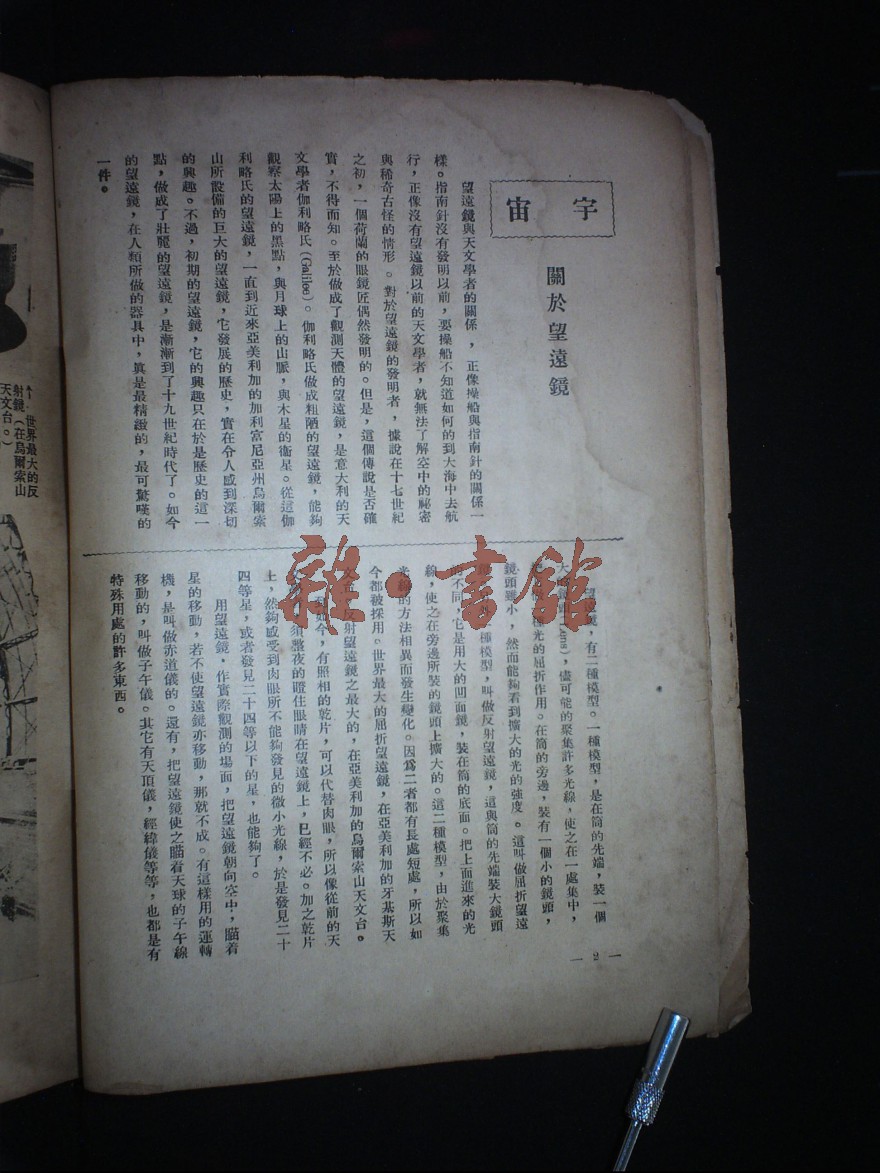 宇宙
關於望遠鏡
望遠鏡與天文學者的關係，正像操船與指南針的關係一
樣。指南針沒有發明以前，要操船不知道如何的到大海中去航
行，正像沒有望遠鏡以前的天文學者，就無法了解空中的祕密
與稀奇古怪的情形。對於望遠鏡的發明者，據說在十七世紀
之初，一個荷蘭的眼鏡匠偶然發明的。但是，這個傳說是否確
實，不得而知。至於做成了觀測天體的望遠鏡，是意大利的天
文學者伽利略氏(Galileo)。伽利略氏做成粗陋的望遠鏡，能夠
觀察太陽上的黑點，與月球上的山脈，與木星的衛星。從這伽
利略氏的望遠鏡，一直到近來亞美利加的加利富尼亞州烏爾索
山所設備的巨大的望遠鏡，它發展的歷史，實在令人感到深切
的興趣。不過，初期的望遠鏡，它的興趣只在於是歷史的這一
點，做成了壯麗的望遠鏡，是漸漸到了十九世紀時代了。如今
的望遠鏡，在人類所做的器具中，眞是最精緻的，最可驚嘆的
一件。
望遠鏡，有二種模型。一種模型，是在筒的先端，裝一個
大的鏡頭(Lens)，儘可能的聚集許多光線，使之在一處集中，
光的屈折作用。在筒的旁邊，裝有一個小的鏡頭，
鏡頭雖小，然而能夠看到擴大的光的強度。這叫做屈折望遠
種模型，叫做反射望遠鏡，這與筒的先端裝大鏡頭
不同，它是用大的凹面鏡，裝在筒的底面。把上面進來的光
線，使之在旁邊所裝的鏡頭上擴大的。這二種模型，由於聚集
光線的方法相異而發生變化。因爲二者都有長處短處，所以如
今都被採用。世界最大的屈折望遠鏡，在亞美利加的牙基斯天
文台。反射望遠鏡之最大的，在亞美利加的烏爾索山天文台。
如今，有照相的乾片，可以代替肉眼，所以像從前的天
須整夜的瞪住眼睛在望遠鏡上，已經不必。加之乾片
上，然夠感受到肉眼所不能夠發見的微小光線，於是發見二十
四等星，或者發見二十四等以下的星，也能夠了。
用望遠鏡，作實際觀測的場面，把望遠鏡朝向空中，瞄着
星的移動，若不使望遠鏡亦移動，那就不成。有這樣用的運轉
機，是叫做赤道儀的。還有，把望遠鏡使之瞄着天球的子午線
移動的，叫做子午儀。其它有天頂儀，經緯儀等等，也都是有
特殊用處的許多東西。
— 2 —
↑ 世界最大的反
射鏡（在烏爾索山
天文台。）
雜·書館